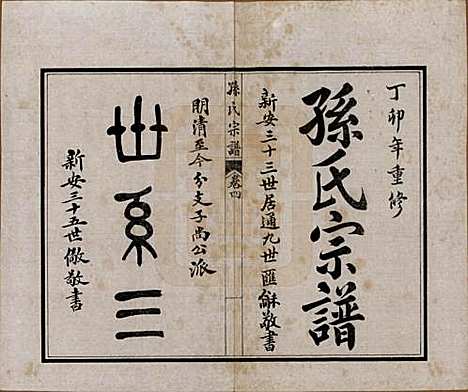 丁卯年重修
孫氏宗譜
新安三十三世居通九世匯龢敬書
孫氏宗譜 卷四
明清至今分支子尚公派
世系三
新安三十五世儆敬書